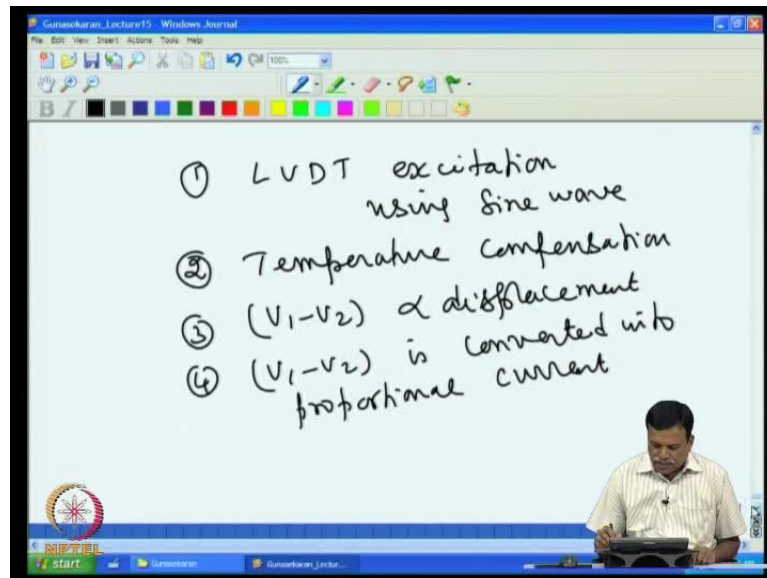 Gunasekaran_Lecture15 - Windows Journal
File Edit View Insert Actions Tools Help
100%
B I
① LVDT excitation
using Sine wave
② Temperature compensation
③ (V1-V2) α displacement
④ (V1-V2) is converted into
proportional current
NPTEL
start
Gunasekaran
Gunasekaran_Lectur...